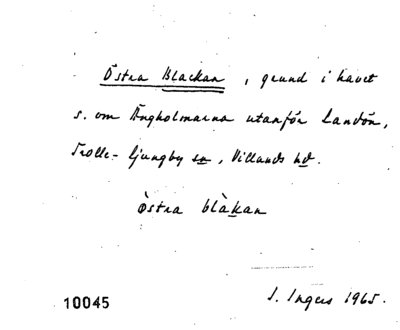 Östra Blackan, grund i havet
s. om Ängholmarna utanför Landön,
Trolle-Ljungby sn, Villands hd.
Òstra blàkan
10045
I. Ingers 1965.